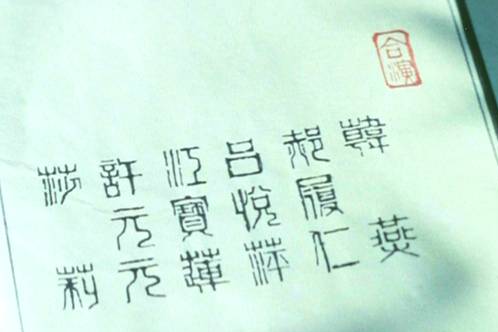 合演
韓燕
郝履仁
呂悅萍
江寶蓮
許元元
莎莉